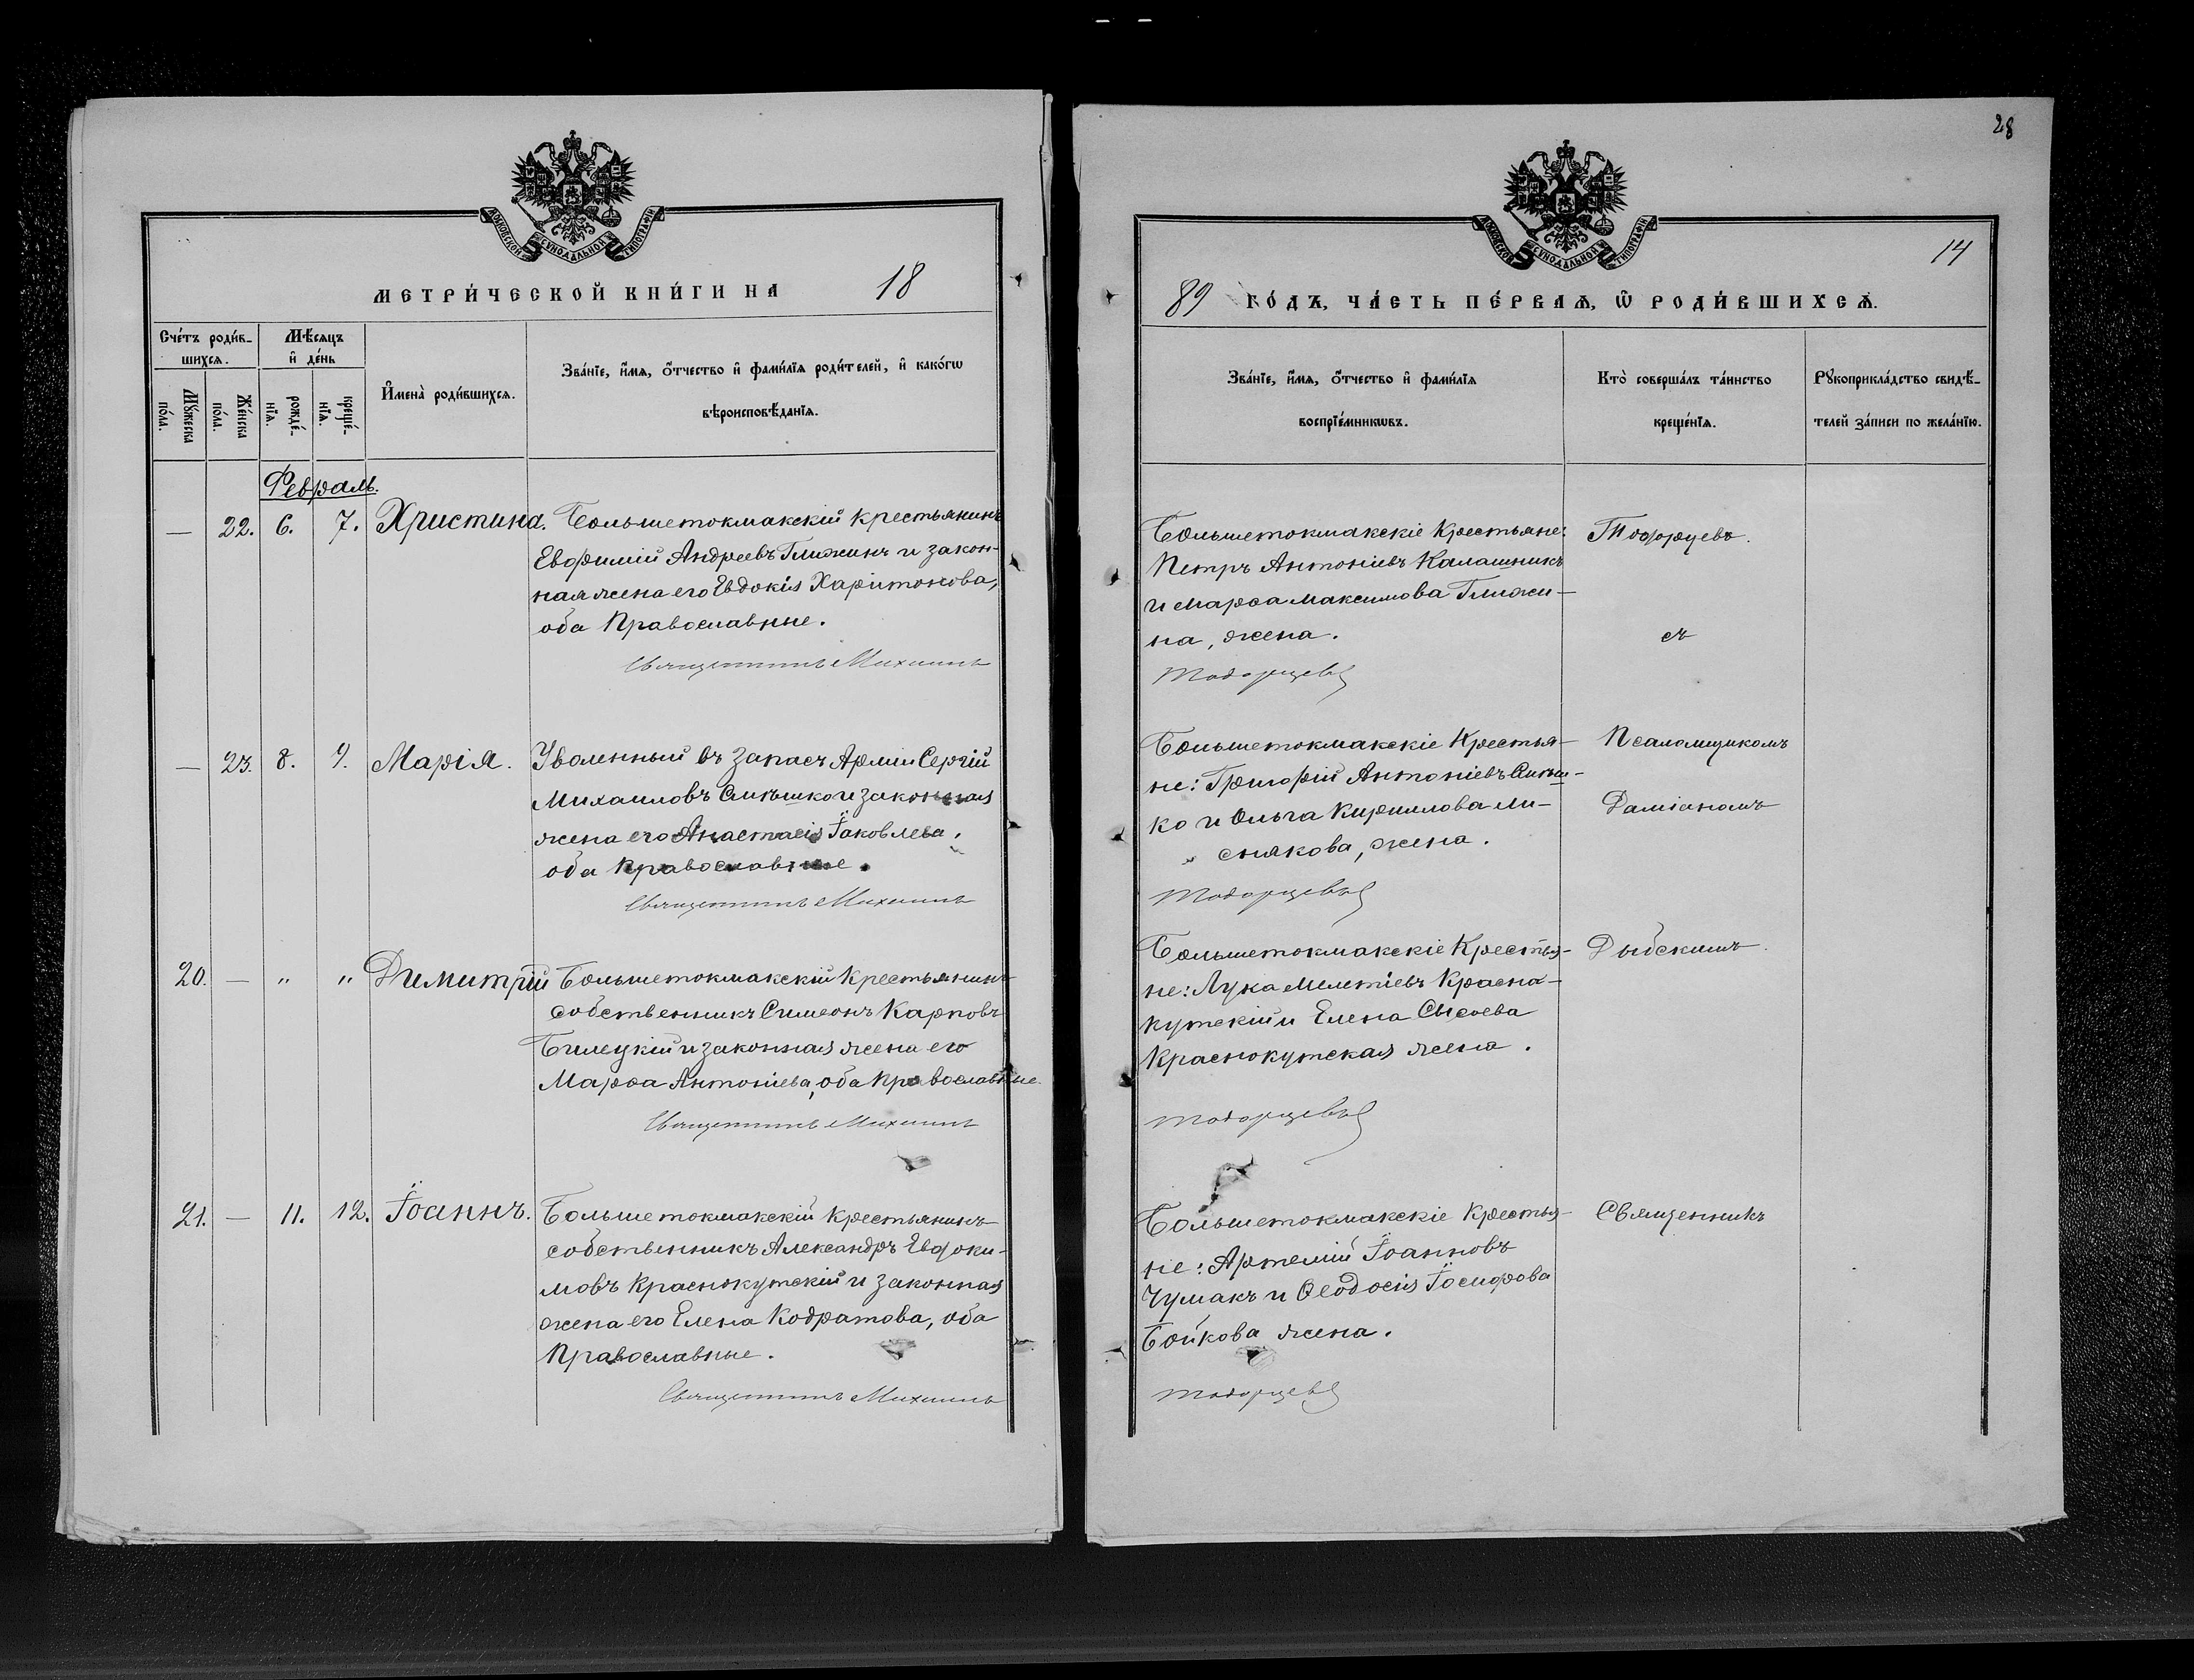 28
МОСКОВСКОЙ СѴНОДАЛЬНОЙ ТИПОГРАФІИ
МЕТРИ́ЧЕСКОЙ КНИ́ГИ НА 18
Сче́тъ роди́в-
шихсѧ.
Мѣ́сѧцъ
и҆ де́нь
Мꙋ́жеска
по́ла.
Же́нска
по́ла.
рожде́-
нїѧ.
креще́-
нїѧ.
И҆мена̀ роди́вшихсѧ.
Зва́нїе, и҆́мѧ, ѻ҆́тчество и҆ фами́лїѧ роди́телей, и҆ како́гѡ
вѣроисповѣ́данїѧ.
Февраль.
— 22. 6. 7. Христина.
Большетокмакскій крестьянинъ
Евфимій Андреевъ Глижинъ и закон-
ная жена его Евдокія Харитонова,
оба Православные.
Священникъ Михаилъ
— 23. 8. 9. Марія.
Уволенный въ запасъ Арміи Сергій
Михаиловъ Синѣшко и законная
жена его Анастасія Іаковлева,
оба Православные.
Священникъ Михаилъ
20. — " " Димитрій
Большетокмакскій крестьянинъ
собственникъ Симеонъ Карповъ
Билецкій и законная жена его
Марѳа Антоніева, оба Православные.
Священникъ Михаилъ
21. — 11. 12. Іоаннъ.
Большетокмакскій крестьянинъ
собственникъ Александръ Евдоки-
мовъ Краснокутскій и законная
жена его Елена Кодратова, оба
Православные.
Священникъ Михаилъ
МОСКОВСКОЙ СѴНОДАЛЬНОЙ ТИПОГРАФІИ
14
89 ГО́ДЪ, ЧА́СТЬ ПЕ́РВАѦ, Ѡ҆ РОДИ́ВШИХСѦ.
Зва́нїе, и҆́мѧ, ѻ҆́тчество и҆ фами́лїѧ
воспрїе́мникѡвъ.
Кто̀ соверша́лъ та́инство
креще́нїѧ.
Рꙋкоприкла́дство свидѣ́-
телей за́писи по жела́нїю.
Большетокмакскіе Крестьяне:
Петръ Антоніевъ Калашникъ
и Марѳа Максимова Глижи-
на, жена.
Тодорцевъ
Тофорцевъ.
съ
Большетокмакскіе Крестья-
не: Григорій Антоніевъ Синѣш-
ко и Ольга Кириллова Ми-
снякова, жена.
Тодорцевъ
Псаломщикомъ
Даміаномъ
Большетокмакскіе Крестья-
не: Лука Мелетіевъ Красно-
кутскій и Елена Сысоева
Краснокутская жена.
Тодорцевъ
Дыбскимъ.
Большетокмакскіе Крестья-
не: Артемій Іоанновъ
Чумакъ и Ѳеодосія Іосифова
Бойкова жена.
Тодорцевъ
Священникъ